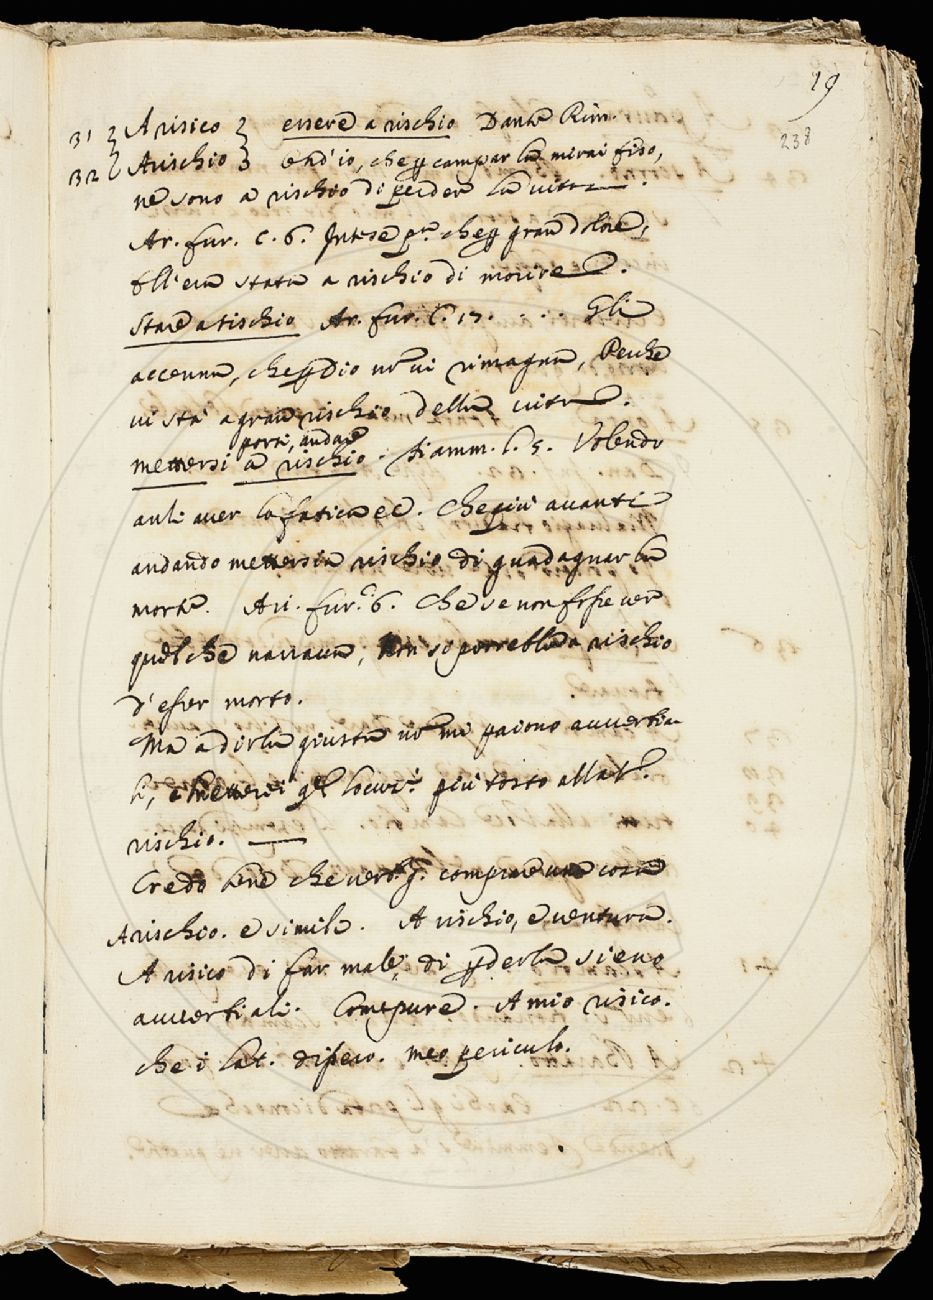 19
238
31 A risico essere a rischio Dante Rim.
32 Arischio ond'io, che p campar la mirai fiso,
ne sono a rischio di perder la vita.
Ar. fur. C. 6. Intese pa. che p gran dolore,
Ell'era stata a rischio di morire.
Stare a rischio Ar. fur. C. 17. . . Gli
accenna, che p Dio nō vi rimagna, Perche
vi sta a gran rischio della vita.
porsi, andare
mettersi a rischio. fiamm. l. 5. Volendo
anzi aver la fatica ec. che piu avanti
andando mettersi a rischio di guadagnar la
morte. Ari. fur. C. 6. Che se non fosse ver
quel che narrava, Non si porrebbe a rischio
d'esser morto.
Ma a dirla giusta nō mi paiono avverbia-
li, e metterei qte locuzi. piu tosto alla l.
rischio.
Credo bene che verb. g. comprare una cosa
Arischio. e simile. A rischio, e ventura.
A risico di far male, di pderla sieno
avverbiali. Come pure. A mio risico.
che i Lat. dissero. meo periculo.